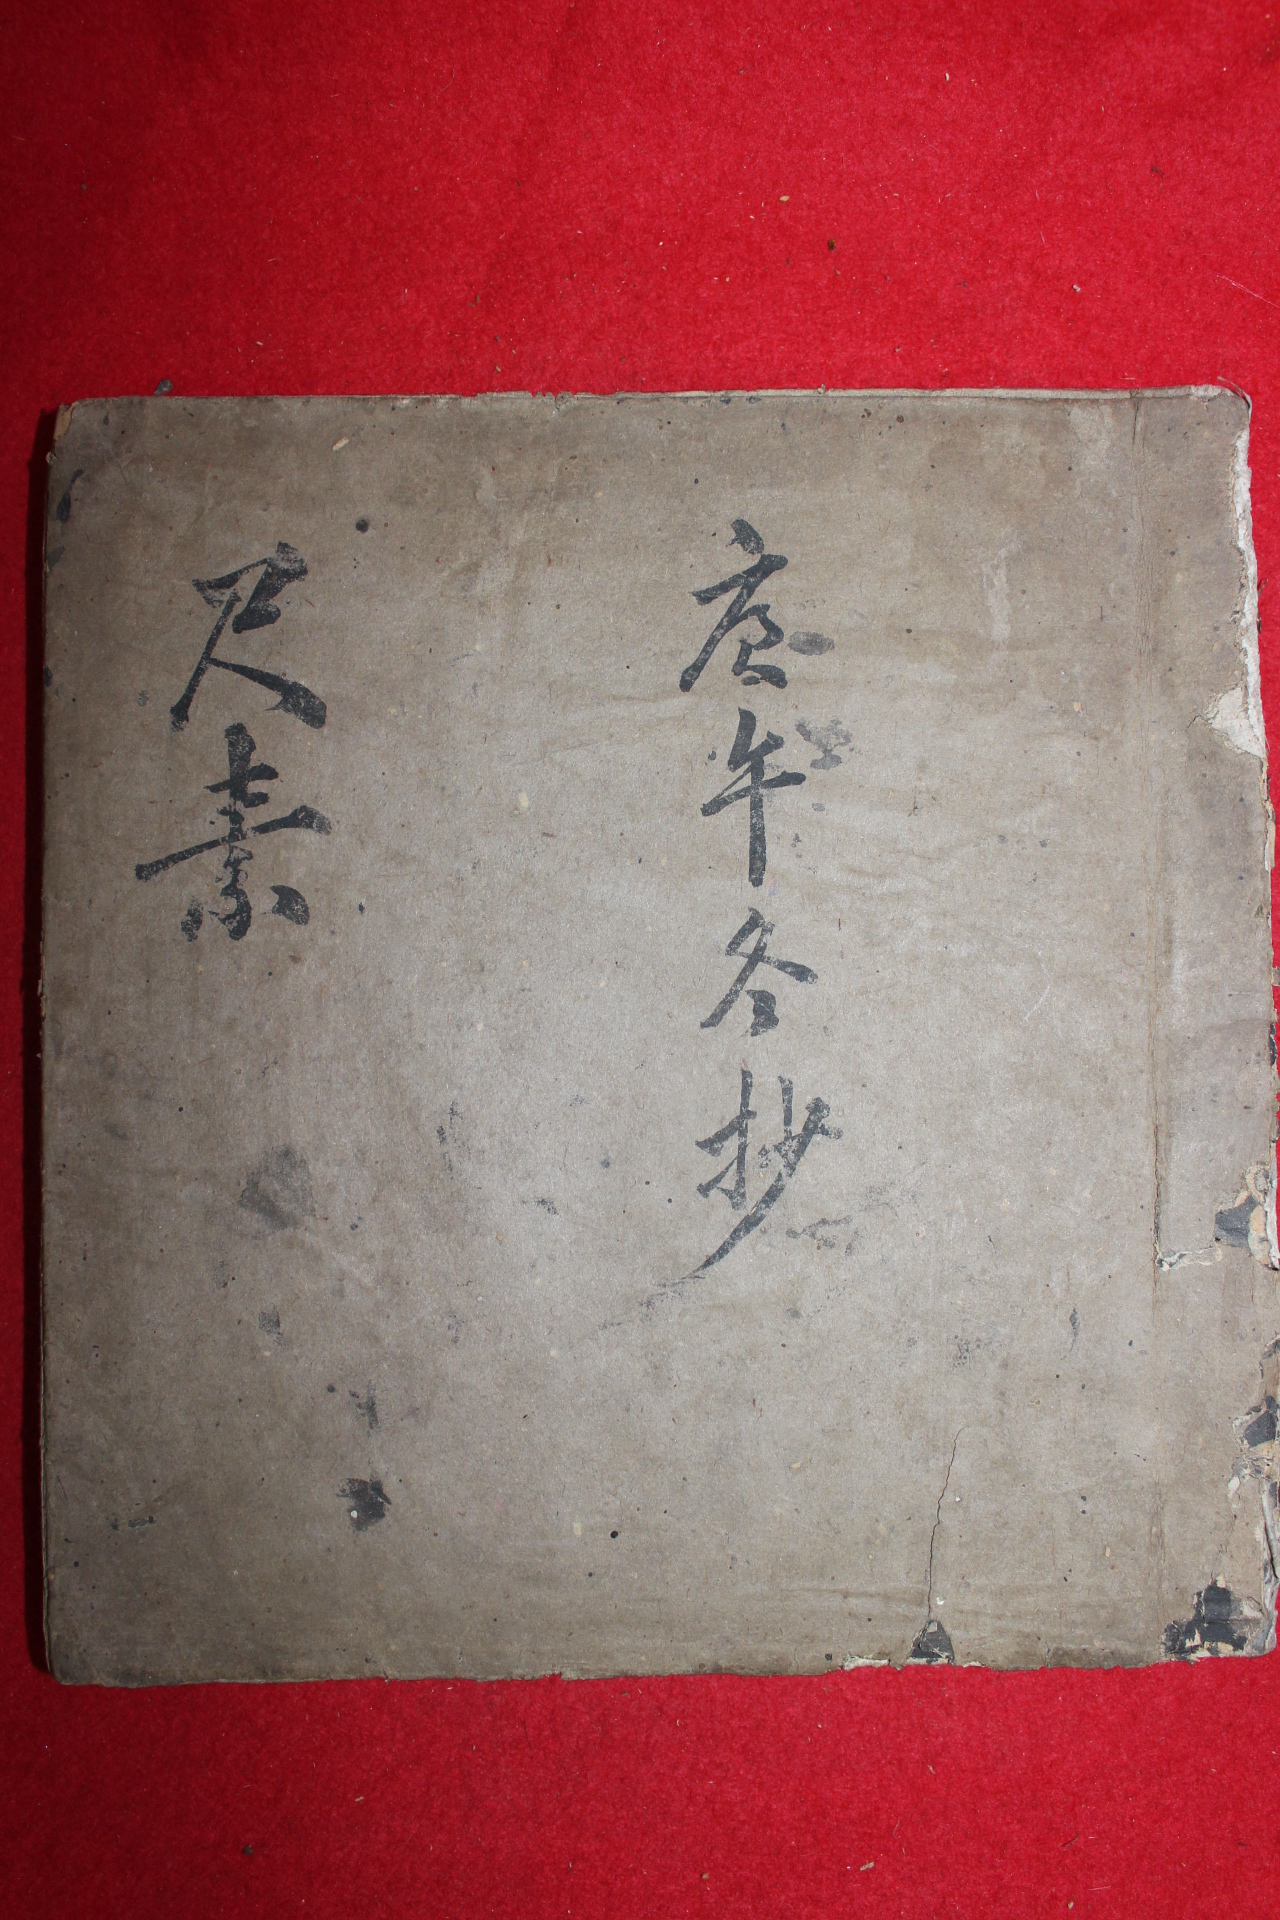 庚午冬抄
尺素